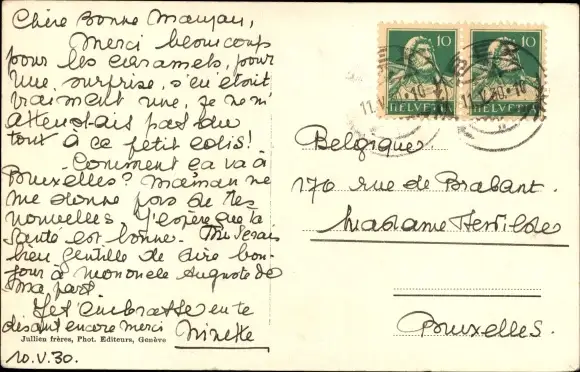 Chère Bonne Maman,
Merci beaucoup
pour les caramels, pour
une surprise, s'en était
vraiment une, je ne m'
attendais pas du
tout à ce petit colis!
Comment ça va à
Bruxelles? Maman ne
me donne pas de tes
nouvelles. J'espère que ta
santé est bonne. Tu serais
bien gentille de dire bon-
jour à mon oncle Auguste de
ma part
Je t'embrasse en te
disant encore merci
Ninette
Julien frères, Phot. Editeurs, Genève
10.V.30.
10 10
HELVETIA HELVETIA
11.V.30.-10 11.V.30.-10
Belgique.
170 rue de Brabant.
Madame
Bruxelles.